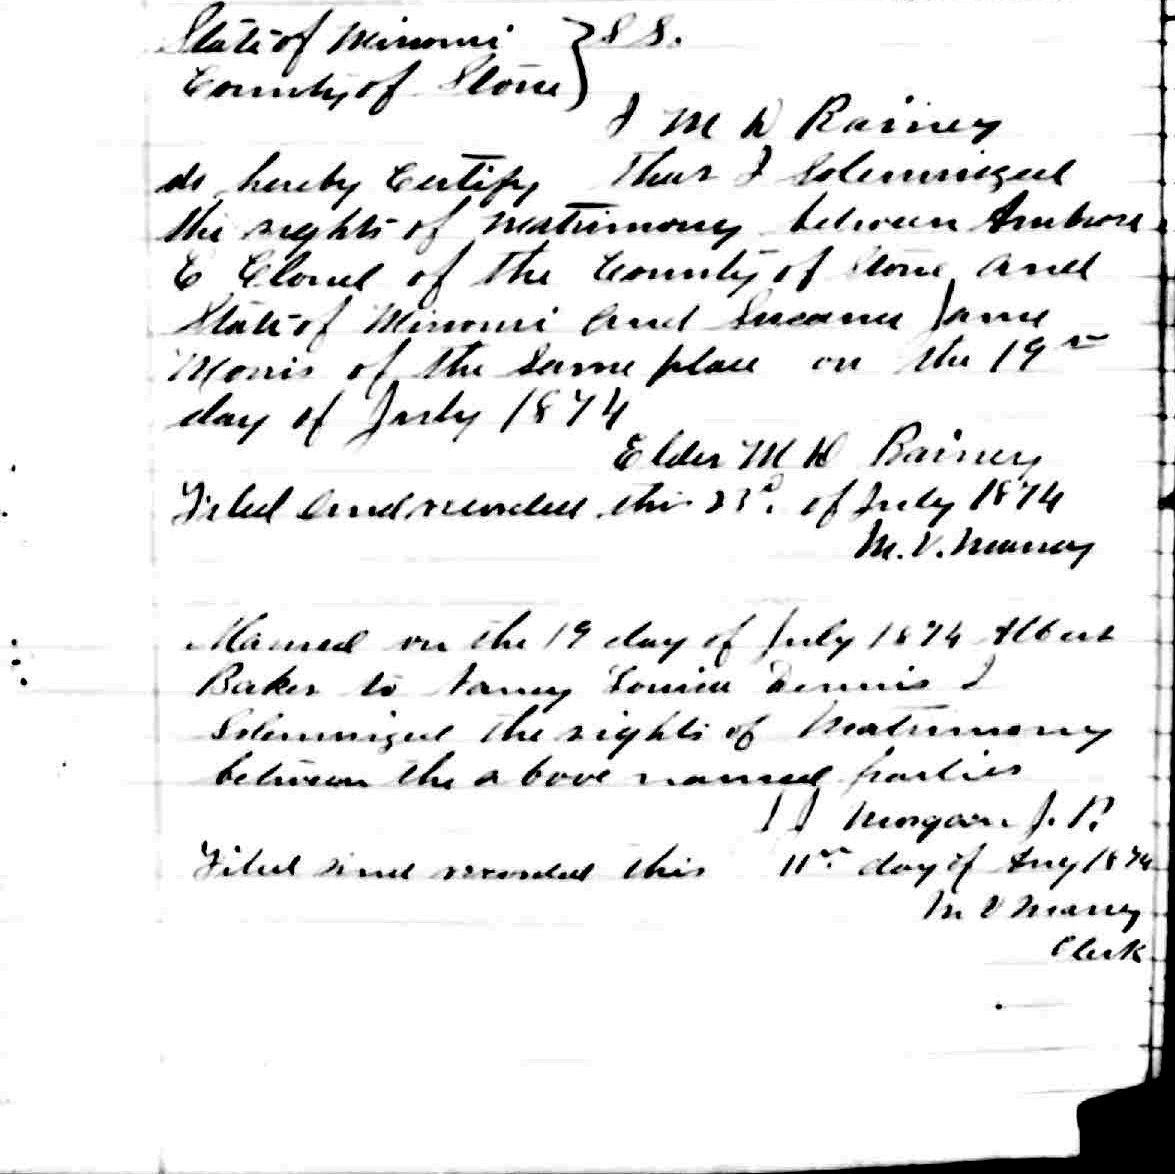 State of Missouri } SS.
County of Stone
I M D Rainey
do hereby Certify That I Solemnized
the rights of Matrimony between Ambrose
E Cloud of the County of Stone and
State of Missouri and Susanna Jane
Morris of the Same place on the 19th
day of July 1874
Elder M D Rainey
Filed and recorded this 23d. of July 1874
M. V.
Married on the 19 day of July 1874 Albert
Baker to Nancy Louisa Dennis I
Solemnized the rights of Matrimony
between the above named parties
Morgan J. P.
Filed and recorded this 11th day of Aug 1874
M V
Clerk